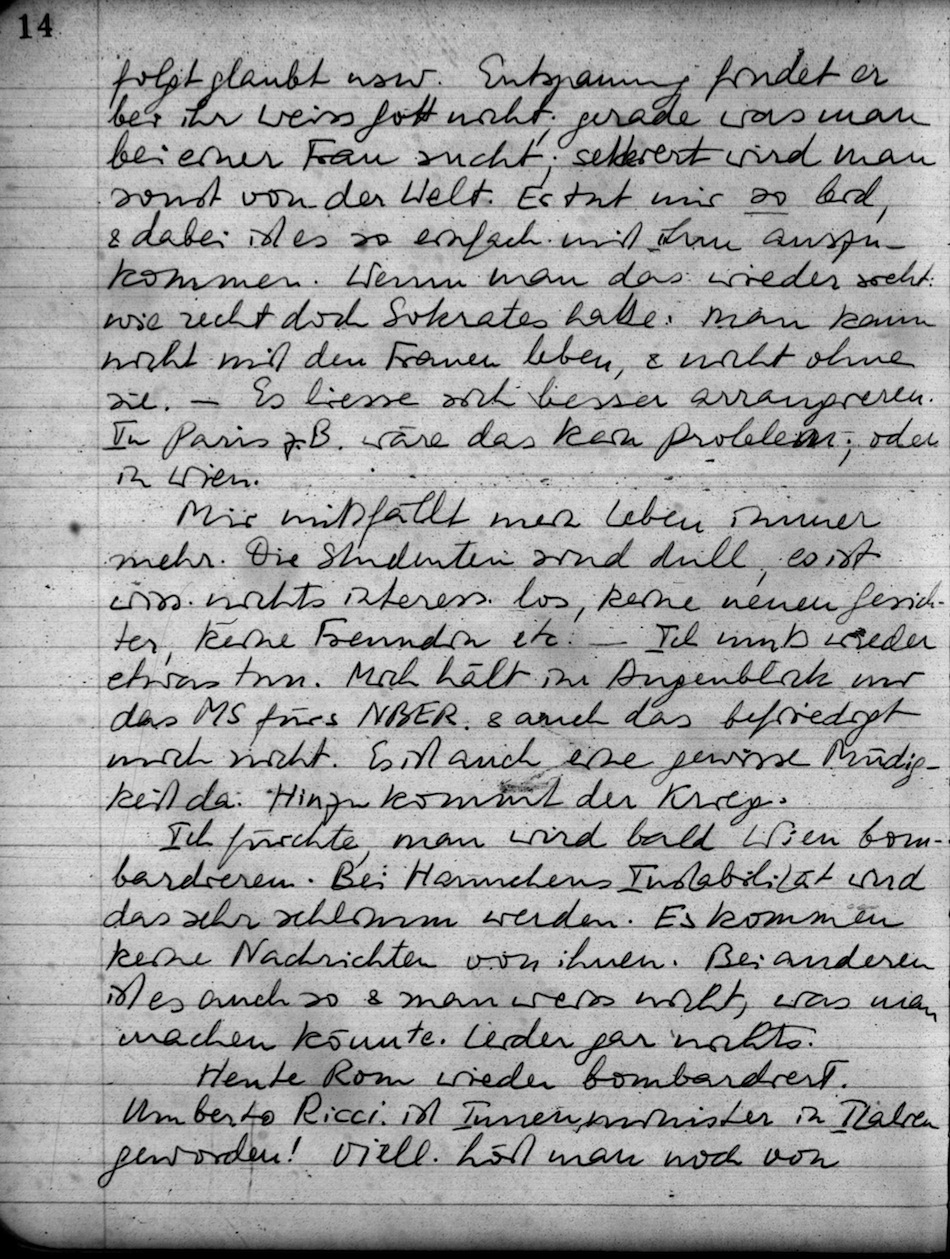 14
folgt glaubt usw. Entspannung findet er
bei ihr weiss Gott nicht, gerade was man
bei einer Frau sucht; sekkiert wird man
sonst von der Welt. Er tut mir so leid,
& dabei ist es so einfach mit ihm auszu-
kommen. Wenn man das wieder sieht:
wie recht doch Sokrates hatte: man kann
nicht mit den Frauen leben, & nicht ohne
sie. — Es liesse sich besser arrangieren.
In Paris z.B. wäre das kein Problem; oder
in Wien.
Mir mißfällt mein Leben immer
mehr. Die Studenten sind dull, es ist
wiss. nichts interess. los, keine neuen Gesich-
ter, keine Freundin etc. — Ich muß wieder
etwas tun. Mich hält im Augenblick nur
das MS fürs NBER. & auch das befriedigt
mich nicht. Es ist auch eine gewisse Müdig-
keit da. Hinzu kommt der Krieg.
Ich fürchte, man wird bald Wien bom-
bardieren. Bei Hannchens Instabilität wird
das sehr schlimm werden. Es kommen
keine Nachrichten von ihnen. Bei anderen
ist es auch so & man weiss nicht, was man
machen könnte. Leider gar nichts.
Heute Rom wieder bombardiert.
Umberto Ricci ist Innenminister in Italien
geworden! Viell. hört man noch von